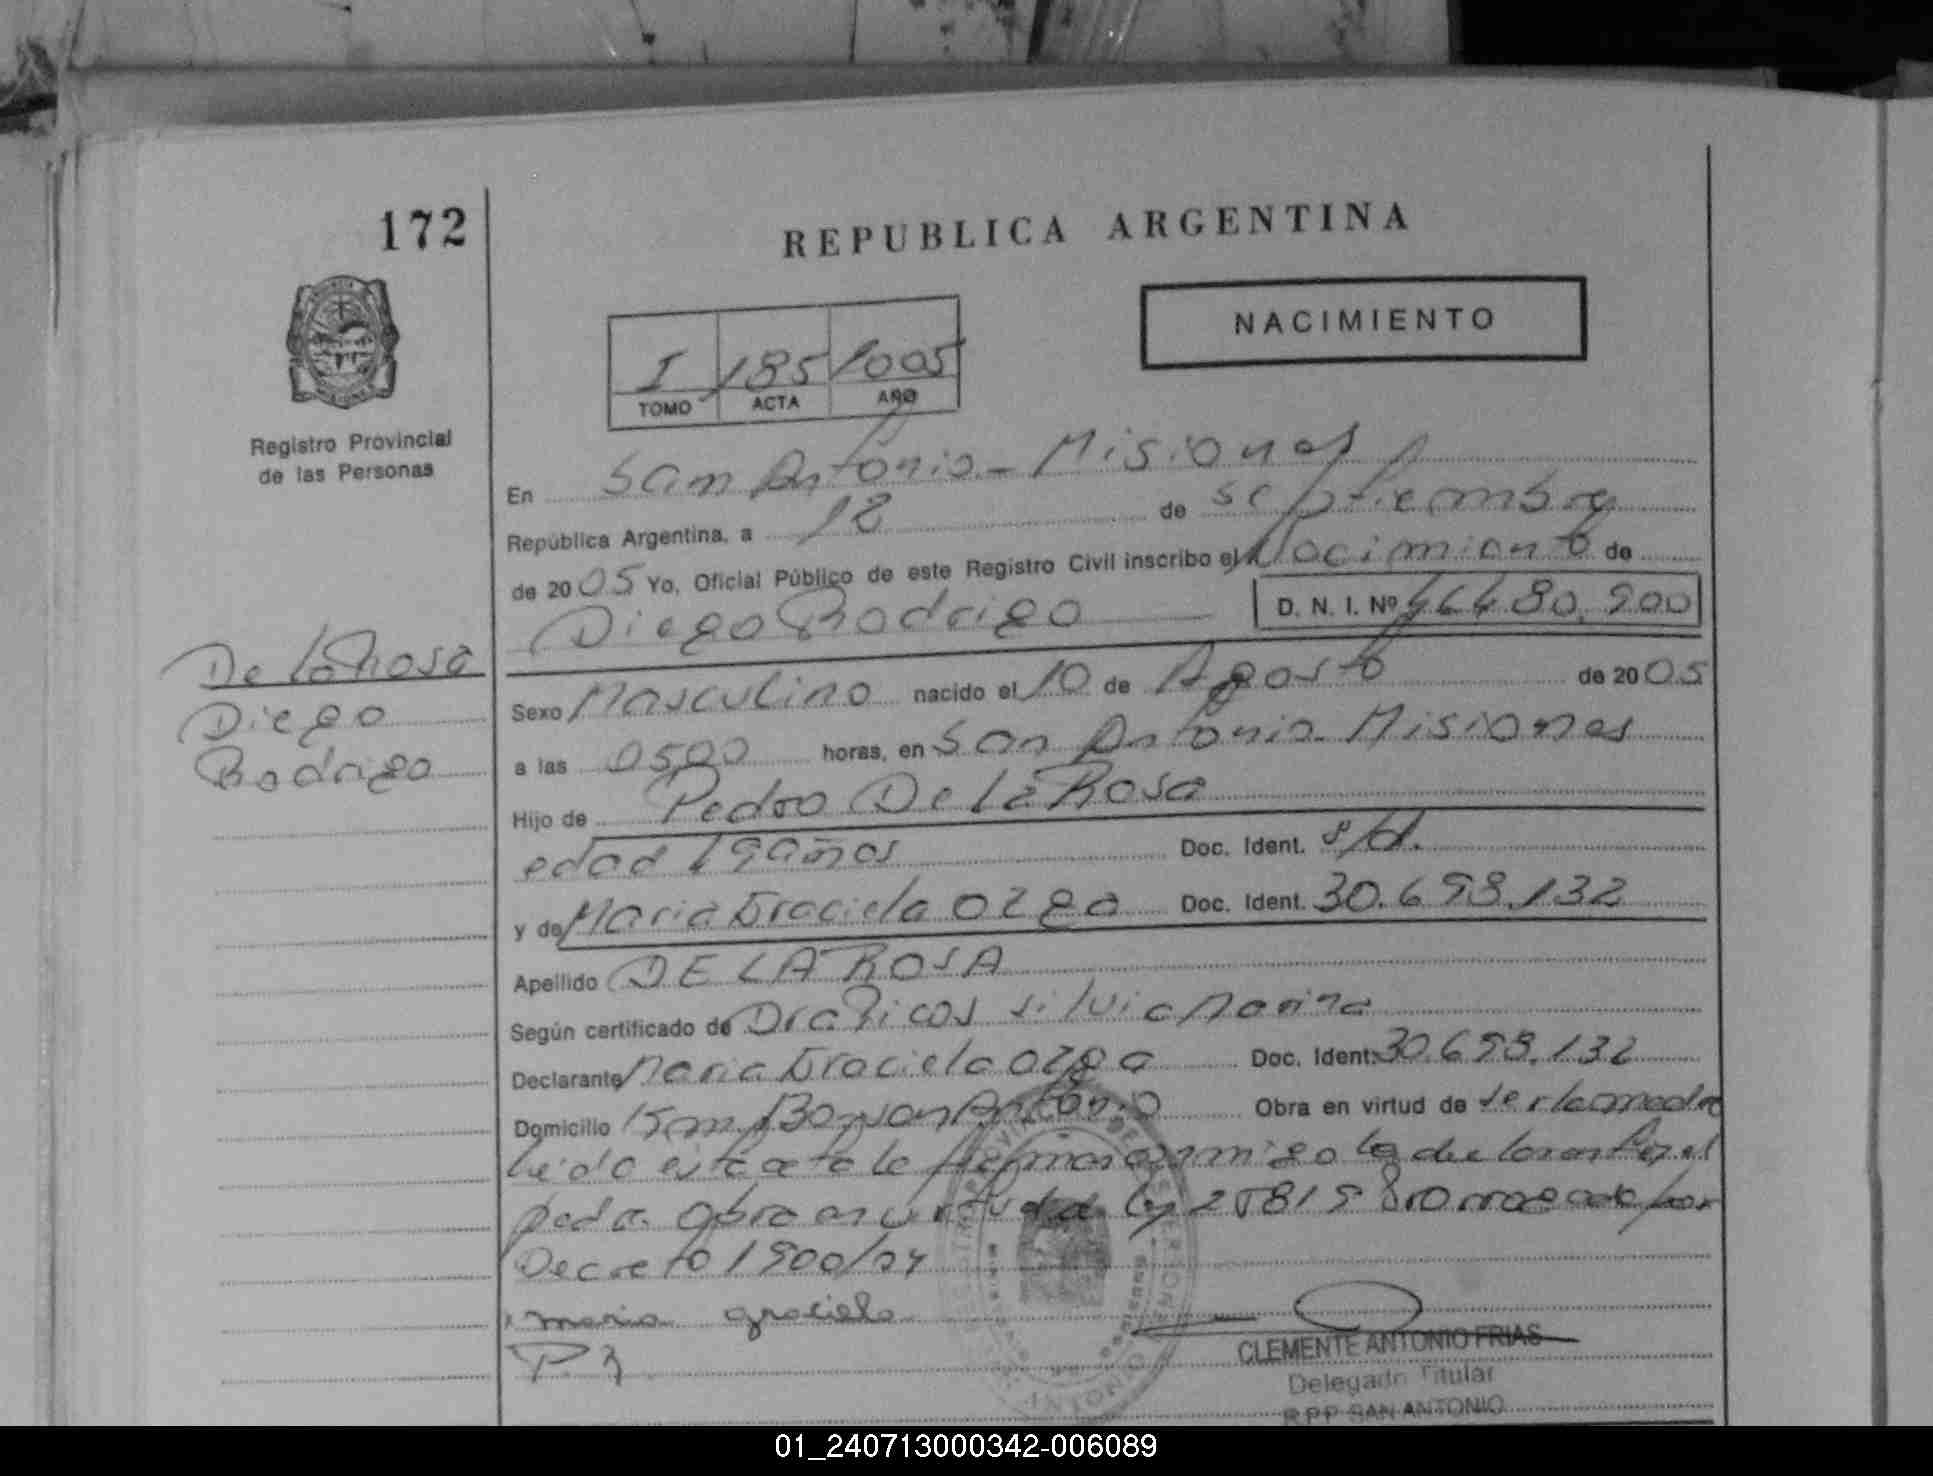 172
REPUBLICA ARGENTINA
NACIMIENTO
I 185
TOMO ACTA AÑO
Registro Provincial
de las Personas
En San Antonio - Misiones
República Argentina, a 12 de septiembre
de 2005 Yo, Oficial Público de este Registro Civil inscribo el Nacimiento de
Diego Rodrigo D. N. I. Nº
De la Rosa
Diego
Rodrigo
Sexo Masculino nacido el 10 de Agosto de 2005
a las 0500 horas, en San Antonio - Misiones
Hijo de Pedro De la Rosa
edad 19 años Doc. Ident. s/d.
y de Maria Graciela Doc. Ident. 30.698.132
Apellido DE LA ROSA
Según certificado de Silvia Marina
Declarante Maria Graciela Doc. Ident. 30.698.132
Domicilio San Antonio Obra en virtud de ser la madre
Leido esta acta la conmigo la declarante el
Obra en virtud de ley 25819 por
Decreto 1900/04
maria graciela
CLEMENTE ANTONIO FRIAS
Delegado Titular
R.P.P. SAN ANTONIO
01_240713000342-006089